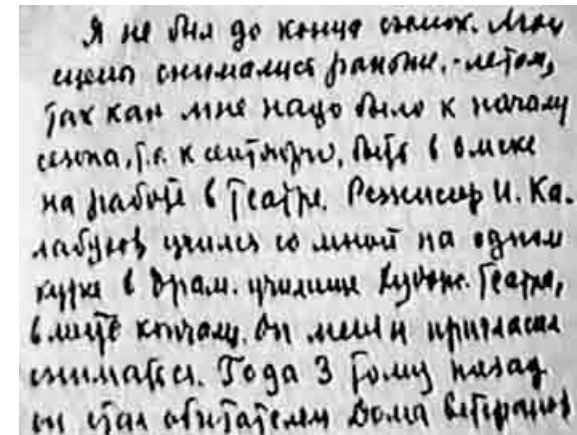 Я не был до конца съемок. Мои
сцены снимались раньше, - летом,
так как мне надо было к началу
сезона, т.е. к сентябрю, быть в Омске
на работе в Театре. Режиссер И. Ка-
лабухов учился со мной на одном
курсе в драм. училище Худож. Театра,
вместе кончали. Он меня и пригласил
сниматься. Года 3 тому назад
он стал обитателем Дома ветеранов